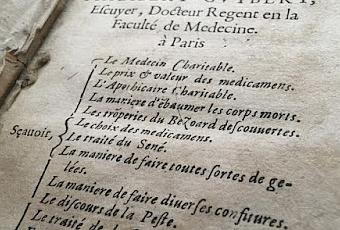 Escuyer, Docteur Regent en la
Faculté de Medecine.
à Paris
Le Medecin Charitable.
Le prix & valeur des medicamens.
L'Apothicaire Charitable.
La maniere d'ébaumer les corps morts.
Les troperies du Bezoard descouvertes.
Sçauoir, Le choix des medicamens.
Le traité du Sené.
La maniere de faire toutes sortes de ge-
lées.
La maniere de faire diuerses confitures.
Le discours de la Peste.
Le traité de la